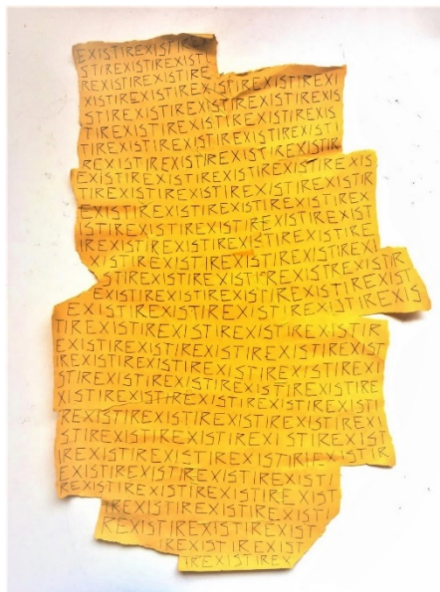 EXISTIREXISTIRE
STIREXISTIREXISTI
REXISTIREXISTIRE
XISTIREXISTIREXISTIREXISTIREXI
STIREXISTIREXISTIREXISTIREXIS
TIREXISTIREXISTIREXISTIREXIS
TIREXISTIREXISTIREXISTIREXISTI
REXISTIREXISTIREXISTIREXISTIR
EXISTIREXISTIREXISTIREXISTIREXIS
TIREXISTIREXISTIREXISTIREXISTIR
EXISTIREXISTIREXISTIREXISTIREX
ISTIREXISTIREXISTIREXISTIREXIST
IREXISTIREXISTIREXISTIREXISTIRE
XISTIREXISTIREXISTIREXISTIREXI
STIREXISTIREXISTIREXISTIREXISTIR
EXISTIREXISTIREXISTIREXISTIREXIST
IREXISTIREXISTIREXISTIREXISTIREXIS
TIREXISTIREXISTIREXISTIREXISTIR
EXISTIREXISTIREXISTIREXISTIREXIST
IREXISTIREXISTIREXISTIREXISTIREXI
STIREXISTIREXISTIREXISTIREXISTIRE
XISTIREXISTIREXISTIREXISTIREXISTI
REXISTIREXISTIREXISTIREXISTIREXI
STIREXISTIREXISTIREXISTIREXIST
IREXISTIREXISTIREXISTIREXISTIR
EXISTIREXISTIREXISTIREXISTI
REXISTIREXISTIREXISTIREXIST
IREXISTIREXISTIREXISTI
REXISTIREXISTIREXIST
IREXISTIREXIST
IREXISTIREX